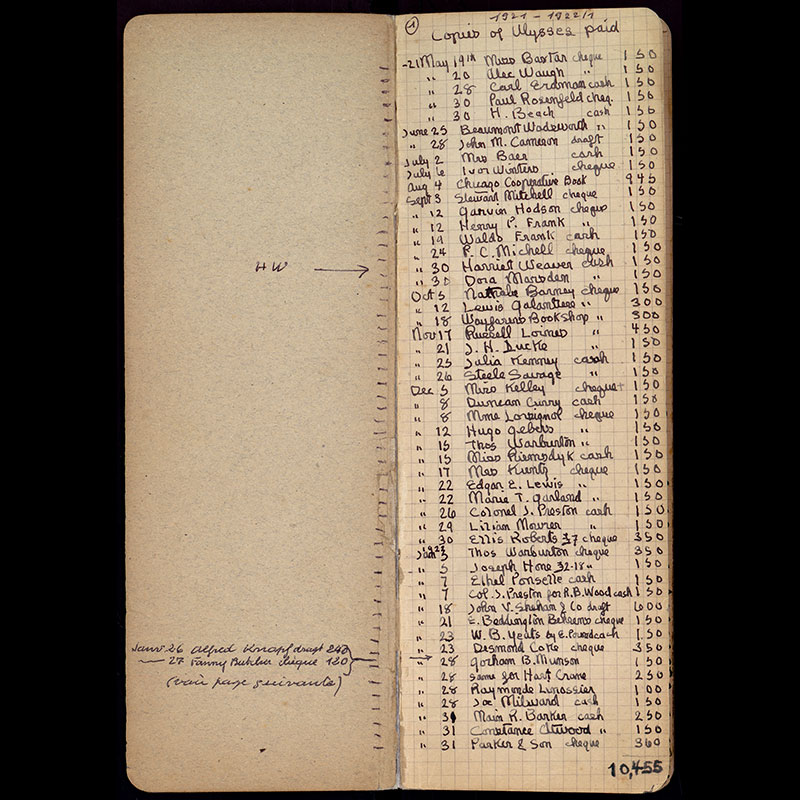 HW →
Janv. 26 Alfred Knopf draft 240
— 27 Fanny Butcher cheque 120
(voir page suivante)
1
1921 - 1922/1
Copies of Ulysses paid
-21 May 19th Miss Baxtar cheque 150
" 20 Alec Waugh " 150
" 28 Carl Erdman cash 150
" 30 Paul Rosenfeld cheq. 150
" 30 H. Beach cash 150
June 25 Beaumont Wadsworth " 150
" 28 John M. Cameron draft 150
July 2 Mrs Baer cash 150
July 16 Ivor Winters cheque 150
Aug 4 Chicago Cooperative Book 945
Sept 3 Stewart Mitchell cheque 150
" 12 Garvin Hodson cheque 150
" 12 Henry P. Frank " 150
" 19 Waldo Frank cash 150
" 24 P. C. Michell cheque 150
" 30 Harriet Weaver cash 150
" 30 Dora Marsden " 150
Oct 5 Nathalie Barney cheque 150
" 12 Lewis Galantiere " 300
" 18 Wayfarers Bookshop " 300
Nov 17 Russell Loines " 450
" 21 J. H. 150
" 25 Julia Kenney cash 150
" 26 Steele Savage " 150
Dec 5 Miss Kelley cheque 150
" 8 Duncan Curry cash 150
" 8 Mme Lorsignol cheque 150
" 12 Hugo " 150
" 15 Thos Warburton " 150
" 15 Miss Riemsdyk cash 150
" 17 Mrs Kuntz cheque 150
" 22 Edgar E. Lewis " 150
" 22 Marie T. Garland " 150
" 26 Colonel J. Preston cash 150
" 29 Lilian Mowrer " 150
" 30 Ellis Roberts 37 cheque 350
1922
Jan 3 Thos Warburton cheque 350
" 5 Joseph Hone 32-18 " 150
" 7 Ethel Ponselle cash 150
" 7 Col. J. Preston for R.B. Wood cash 150
" 18 John V. Sheehan & Co draft 600
" 21 E. Beddington Behrens cheque 150
" 23 W. B. Yeats by E. Pound cash 150
" 23 Desmond Coke cheque 350
" 28 Gorham B. Munson 150
" 28 same for Hart Crane 250
" 28 Raymonde Linossier 100
" 28 Joe Milward cash 150
" 31 Main R. Barker cash 250
" 31 Constance Atwood " 150
" 31 Parker & Son cheque 360
10,455